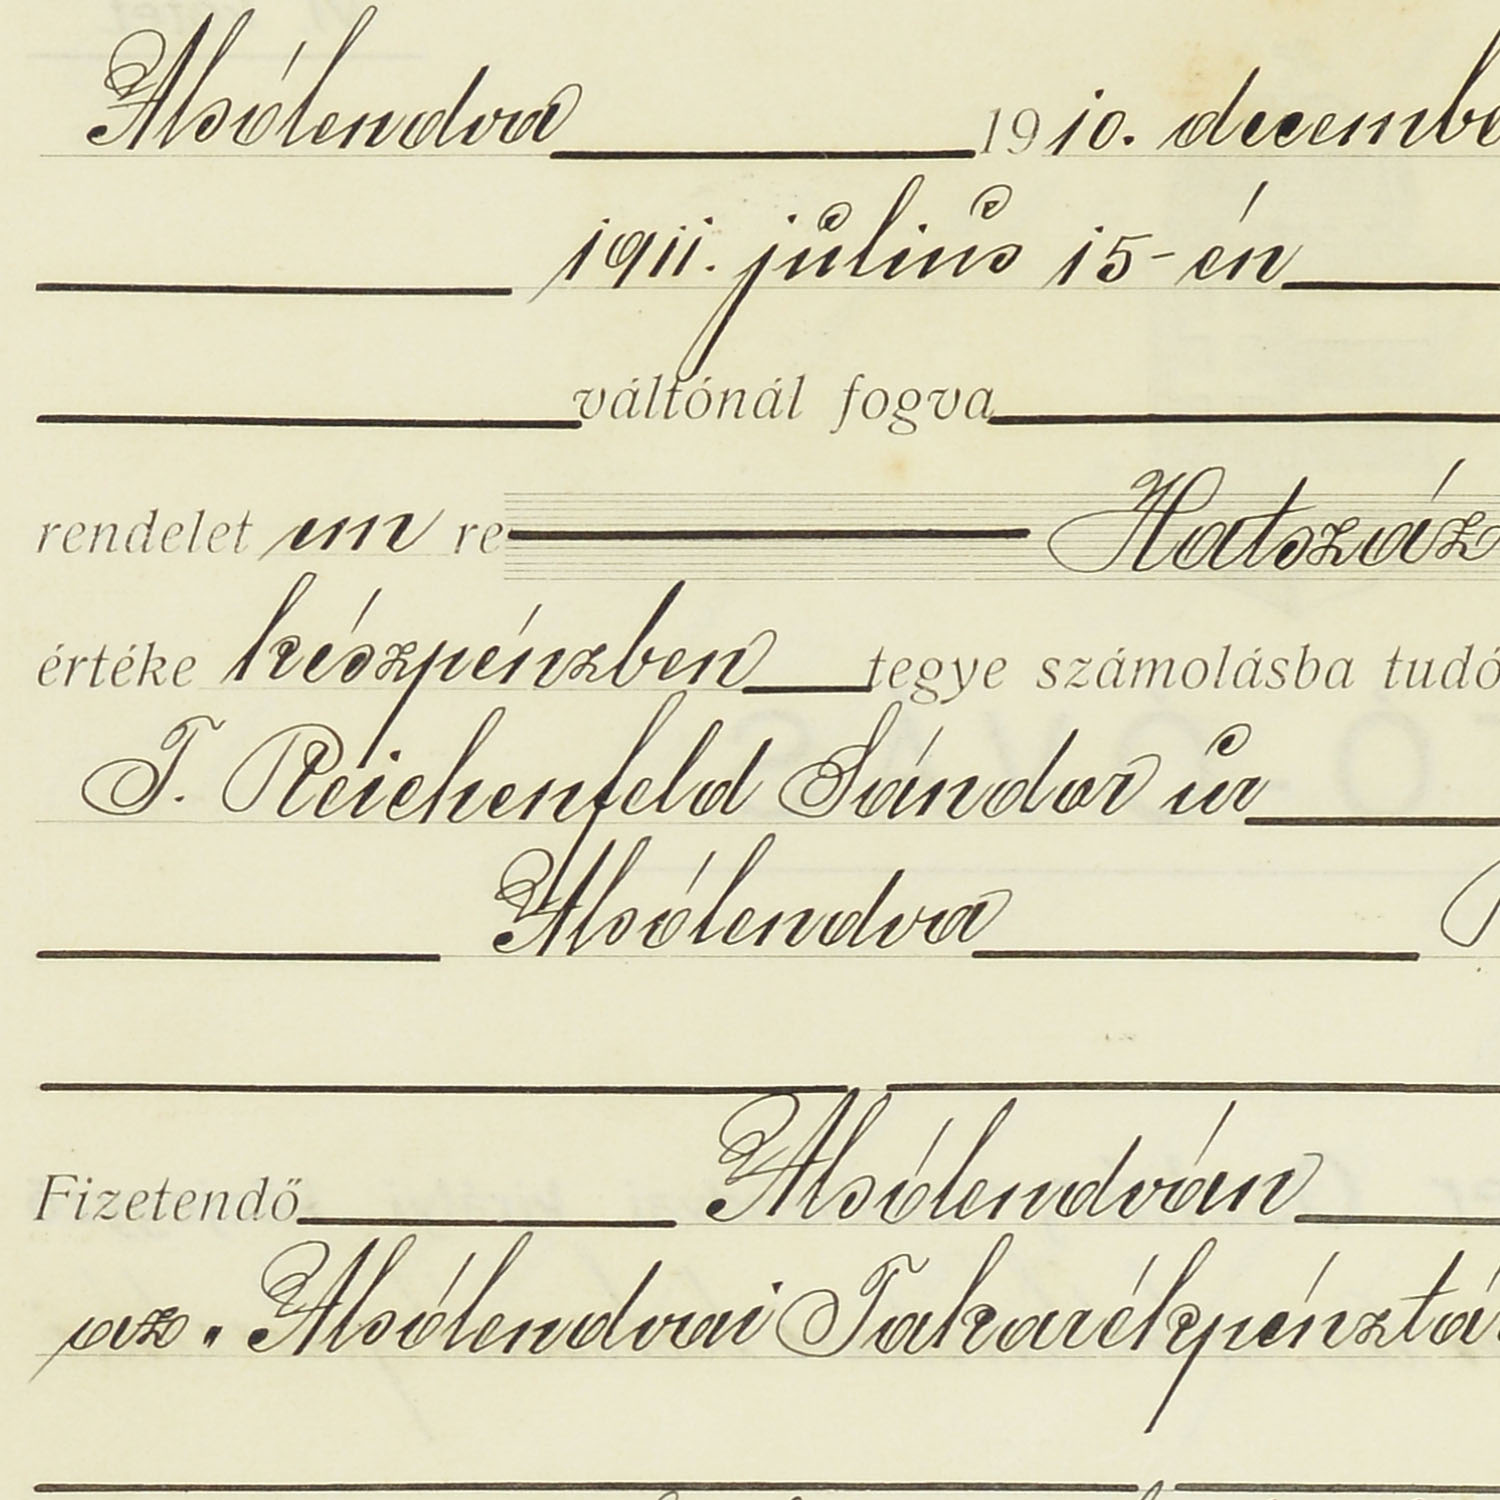 Alsólendva 1910. decembe
1911. július 15-én
váltónál fogva
rendelet em re Hatszáz
értéke készpénzben tegye számolásba tudó
T. Reichenfeld Sándor úr
Alsólendva
Fizetendő Alsólendván
az „Alsólendvai Takarékpénztá